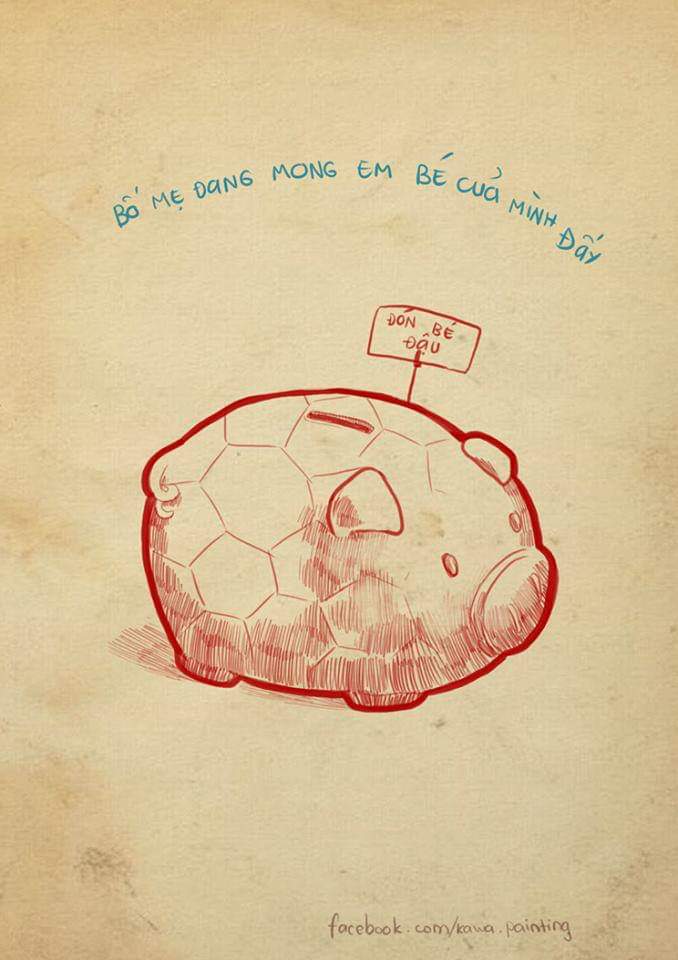 BỐ MẸ ĐANG MONG EM BÉ CUẢ MÌNH ĐẤY
ĐÓN BÉ
ĐẬU
facebook.com/kawa.painting